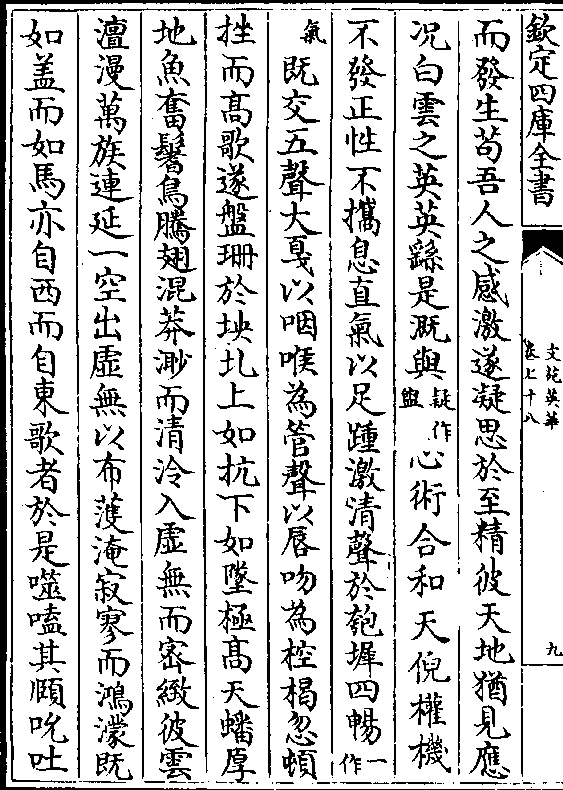 欽定四庫全書
文苑英華
卷七十八
九
而發生茍吾人之感激遂凝思於至精彼天地猶見應
况白雲之英英繇是溉與疑作盥心術合和天倪權機
不發正性不攜息直氣以足踵激清聲於匏墀四暢一作
氣既交五聲大戛以咽喉為管聲以唇吻為椌楬忽頓
挫而高歌遂盤珊於坱圠上如抗下如墜極高天蟠厚
地魚奮鬐鳥騰翅混莽渺而清泠入虛無而密緻彼雲
澶漫萬族連延一空出虛無以布濩淹寂寥而鴻濛既
如盖而如馬亦自西而自東歌者於是噬嗑其頤吮吐